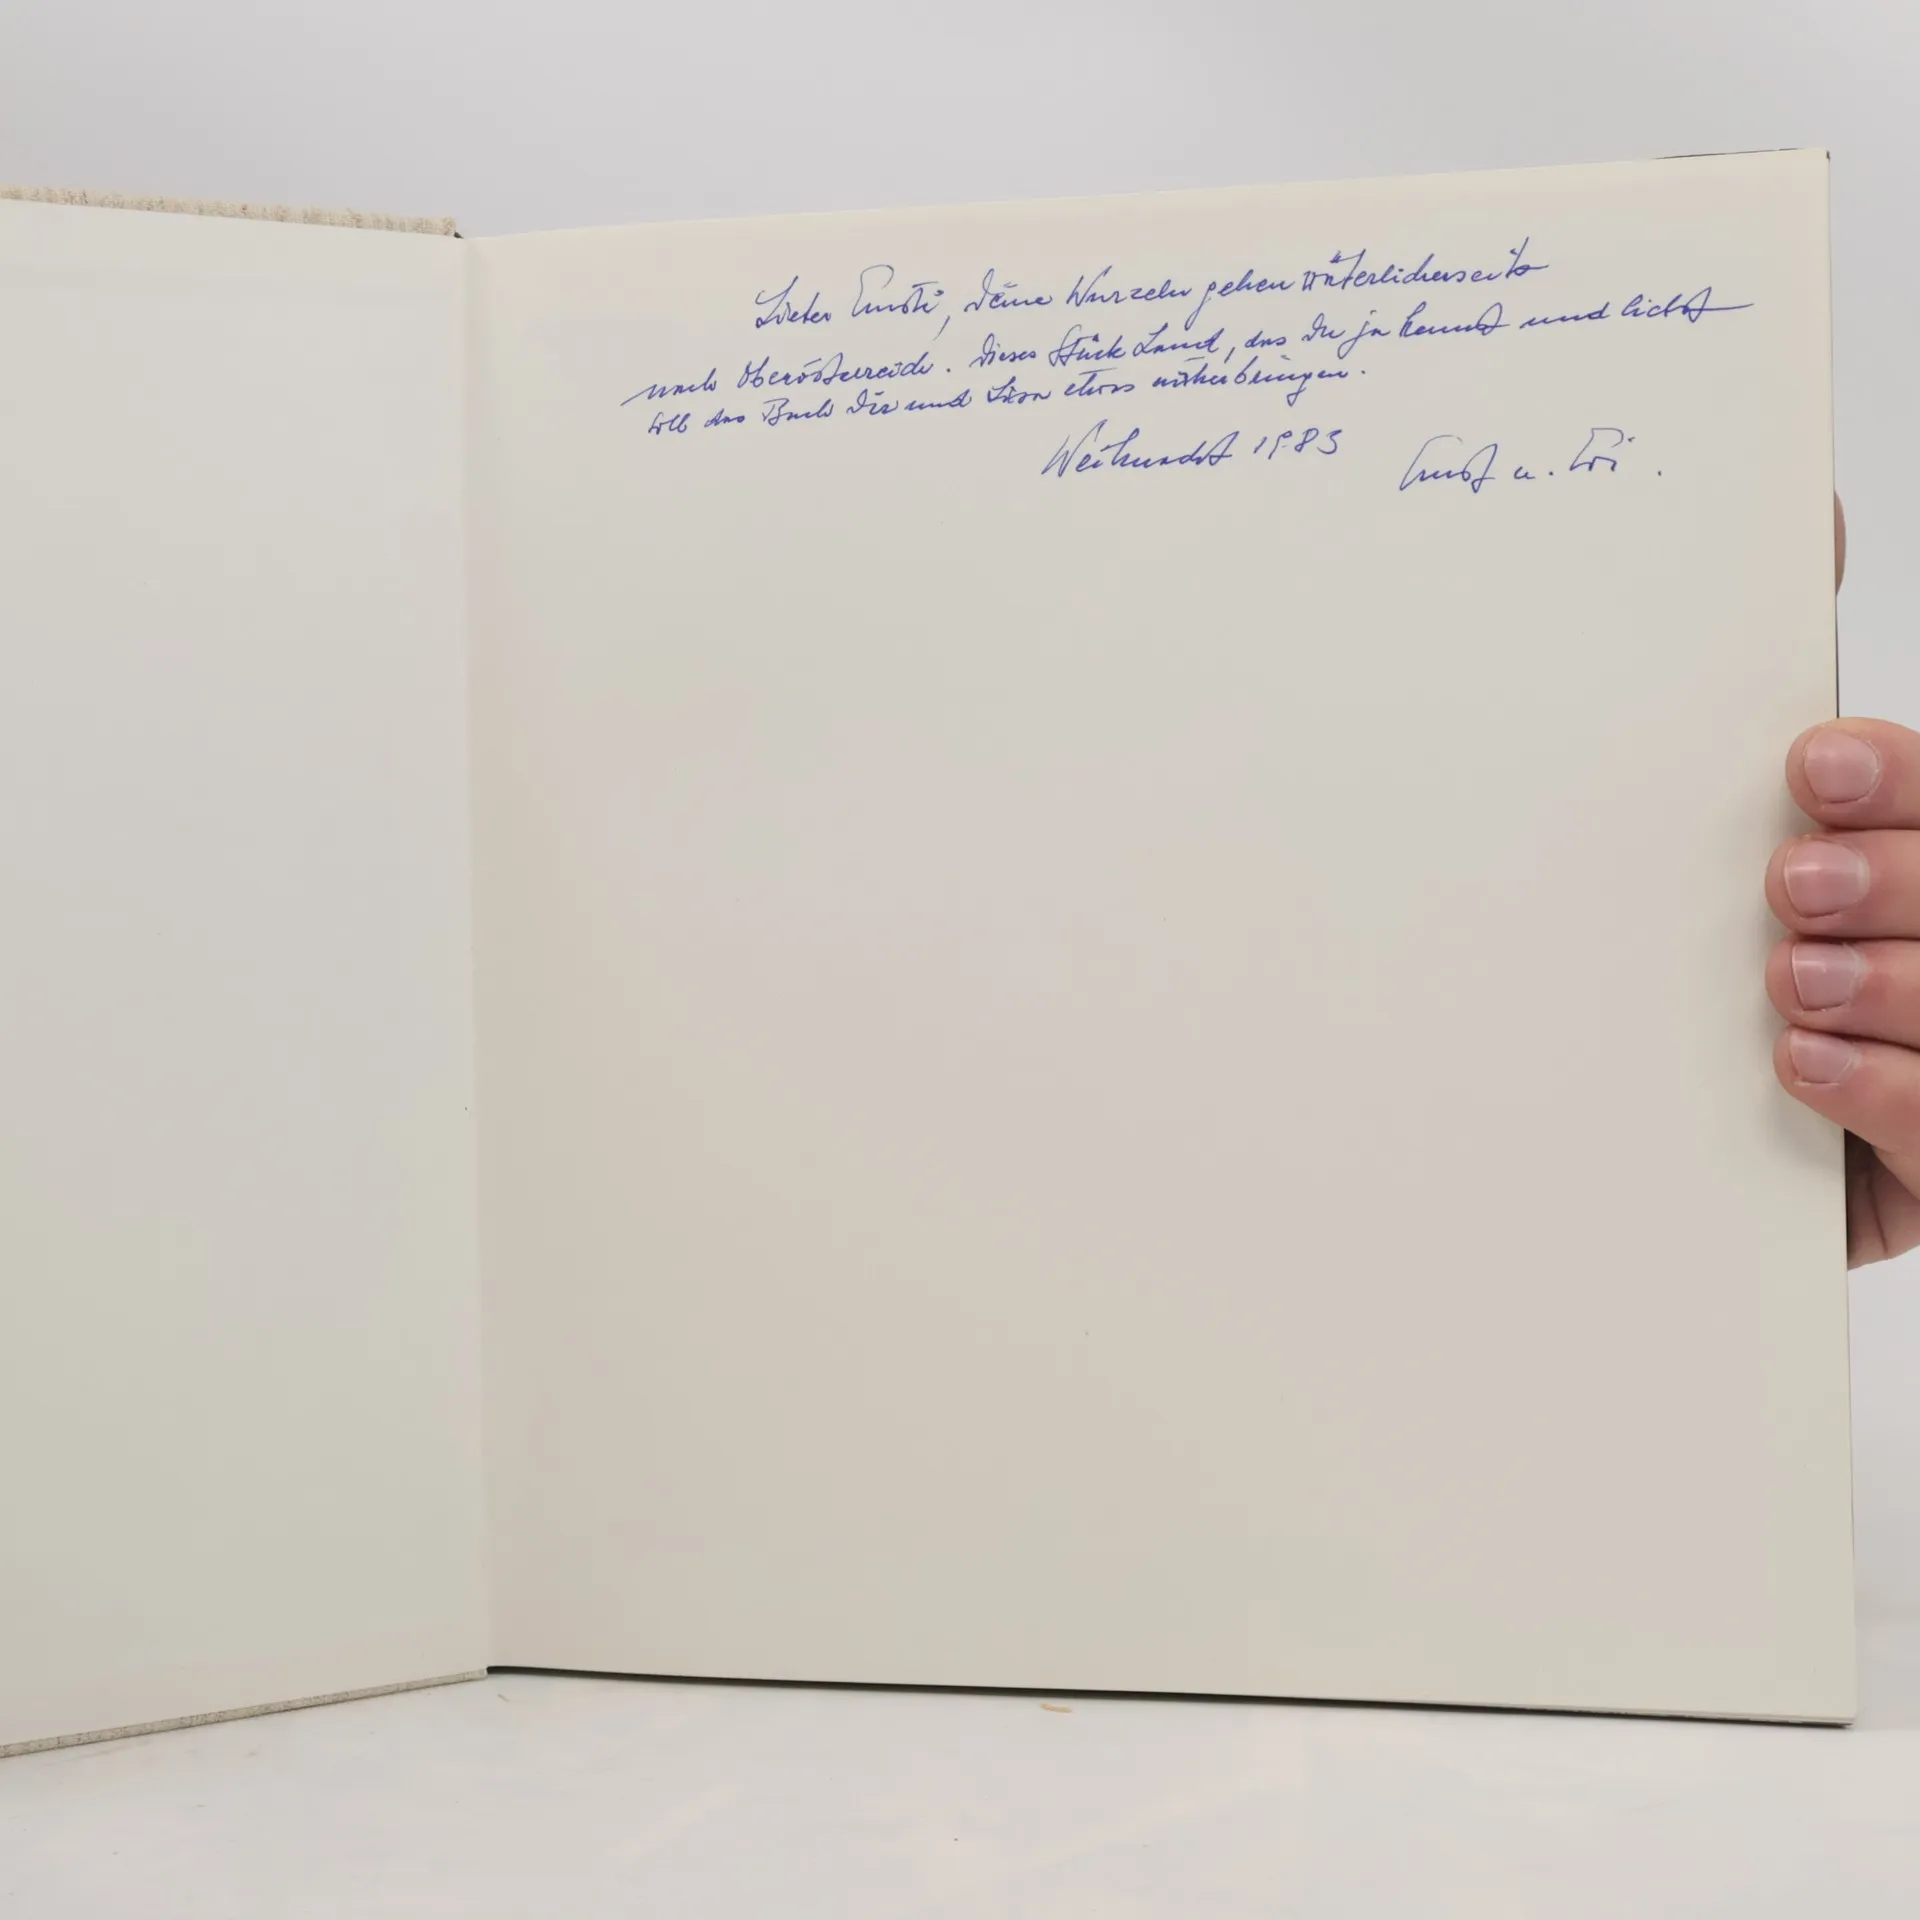 Lieber Ernsti, Deine Wurzeln gehen väterlicherseits
nach Oberösterreich. Dieses Stück Land, das Du ja kennst und liebst
soll das Buch Dir und Lisa etwas näherbringen.
Weihnacht 1983 Ernst u.